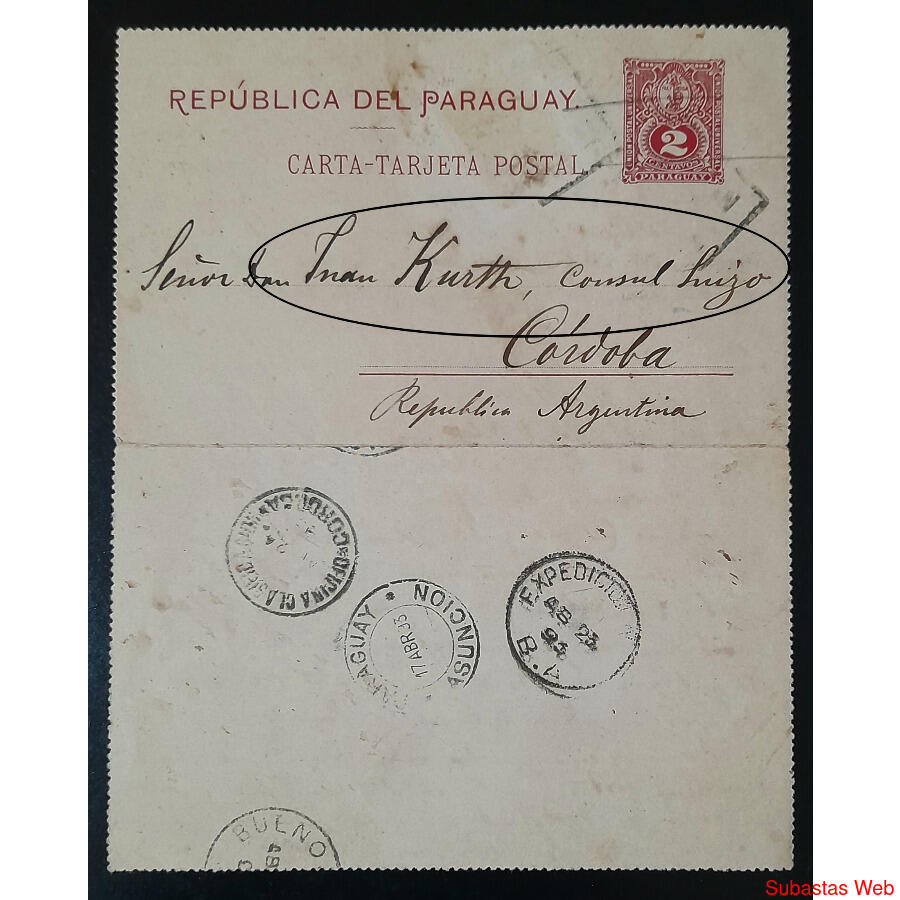 REPÚBLICA DEL PARAGUAY.
CARTA-TARJETA POSTAL
2
CENTAVOS
PARAGUAY
Señor Don Juan Kurth, Consul Suizo
Córdoba
Republica Argentina
OFICINA
PARAGUAY * ASUNCION
17 ABR 93
EXPEDICION
AB 23
93
B.
BUENO
Subastas Web